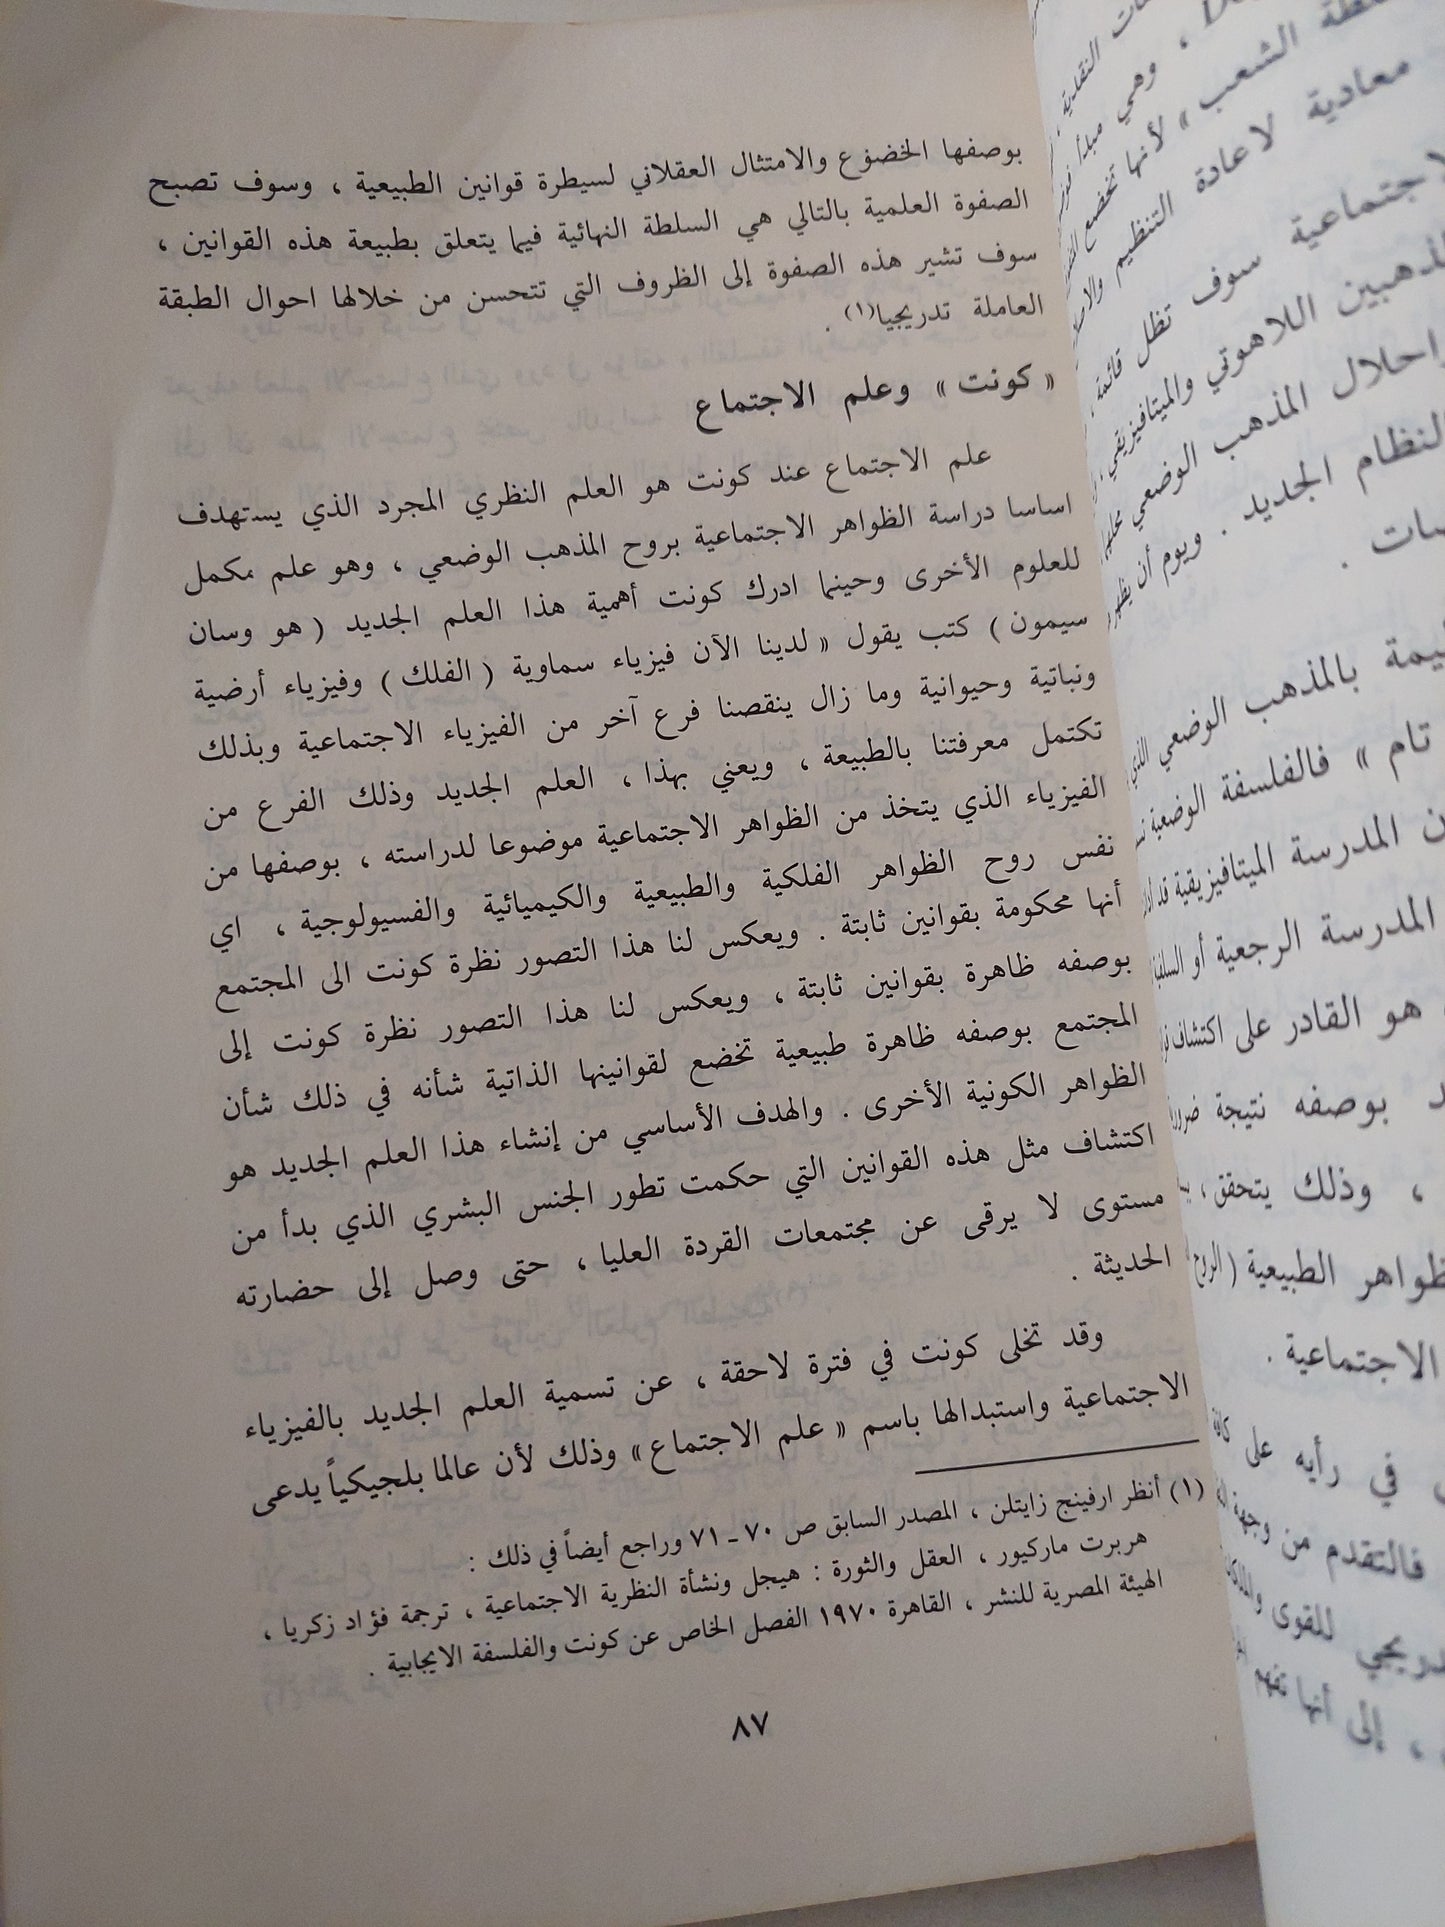 بوصفها الخضوع والامتثال العقلاني لسيطرة قوانين الطبيعية ، وسوف تصبح
الصفوة العلمية بالتالي هي السلطة النهائية فيما يتعلق بطبيعة هذه القوانين ،
سوف تشير هذه الصفوة إلى الظروف التي تتحسن من خلالها احوال الطبقة
العاملة تدريجيا(١) .
« كونت » وعلم الاجتماع
علم الاجتماع عند كونت هو العلم النظري المجرد الذي يستهدف
اساسا دراسة الظواهر الاجتماعية بروح المذهب الوضعي ، وهو علم مكمل
للعلوم الأخرى وحينما ادرك كونت أهمية هذا العلم الجديد ( هو وسان
سيمون ) كتب يقول « لدينا الآن فيزياء سماوية ( الفلك ) وفيزياء أرضية
ونباتية وحيوانية وما زال ينقصنا فرع آخر من الفيزياء الاجتماعية وبذلك
تكتمل معرفتنا بالطبيعة ، ويعني بهذا ، العلم الجديد وذلك الفرع من
الفيزياء الذي يتخذ من الظواهر الاجتماعية موضوعا لدراسته ، بوصفها من
نفس روح الظواهر الفلكية والطبيعية والكيميائية والفسيولوجية ، اي
أنها محكومة بقوانين ثابتة . ويعكس لنا هذا التصور نظرة كونت الى المجتمع
بوصفه ظاهرة بقوانين ثابتة ، ويعكس لنا هذا التصور نظرة كونت إلى
المجتمع بوصفه ظاهرة طبيعية تخضع لقوانينها الذاتية شأنه في ذلك شأن
الظواهر الكونية الأخرى . والهدف الأساسي من إنشاء هذا العلم الجديد هو
اكتشاف مثل هذه القوانين التي حكمت تطور الجنس البشري الذي بدأ من
مستوى لا يرقى عن مجتمعات القردة العليا ، حتى وصل إلى حضارته
الحديثة .
وقد تخلى كونت في فترة لاحقة ، عن تسمية العلم الجديد بالفيزياء
الاجتماعية واستبدالها باسم « علم الاجتماع » وذلك لأن عالما بلجيكياً يدعى
(١) أنظر ارفينج زايتلن ، المصدر السابق ص ٧٠ - ٧١ وراجع أيضاً في ذلك :
هربرت ماركيور ، العقل والثورة : هيجل ونشأة النظرية الاجتماعية ، ترجمة فؤاد زكريا ،
الهيئة المصرية للنشر ، القاهرة ١٩٧٠ الفصل الخاص عن كونت والفلسفة الايجابية .
٨٧
النقدية ،
، وهي مبدأ
الشعب » لأنها تخضع
معادية لاعادة التنظيم
سوف تظل قائمة ،
اللاهوتي والميتافيزيقي ،
المذهب الوضعي
الجديد . ويوم أن
بالمذهب الوضعي
تام » فالفلسفة الوضعية
المدرسة الميتافيزيقية
المدرسة الرجعية أو
هو القادر على اكتشاف
بوصفه نتيجة
، وذلك يتحقق ،
الطبيعية ( الروح
الاجتماعية .
في رأيه على
فالتقدم من
للقوى
، إلى أنها